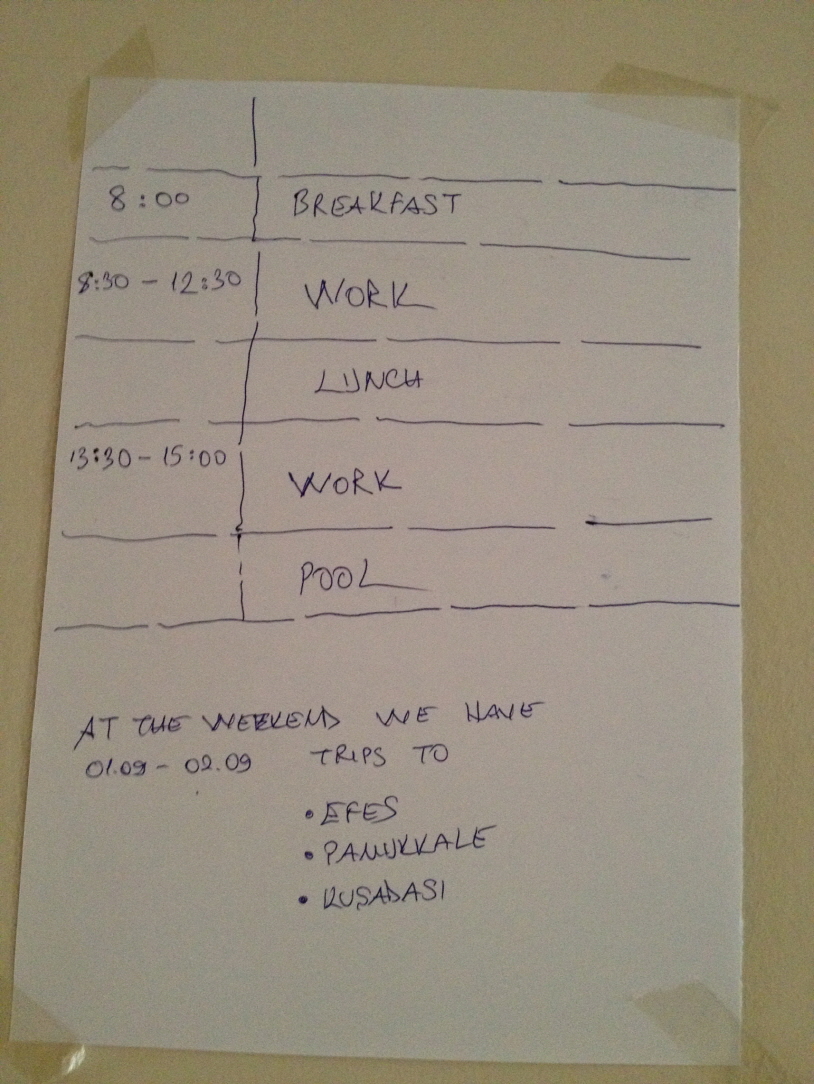 8:00 BREAKFAST
8:30 - 12:30 WORK
LUNCH
13:30 - 15:00 WORK
POOL
AT THE WEEKEND WE HAVE
01.09 - 02.09 TRIPS TO
• EFES
• PAMUKKALE
• KUŞADASI